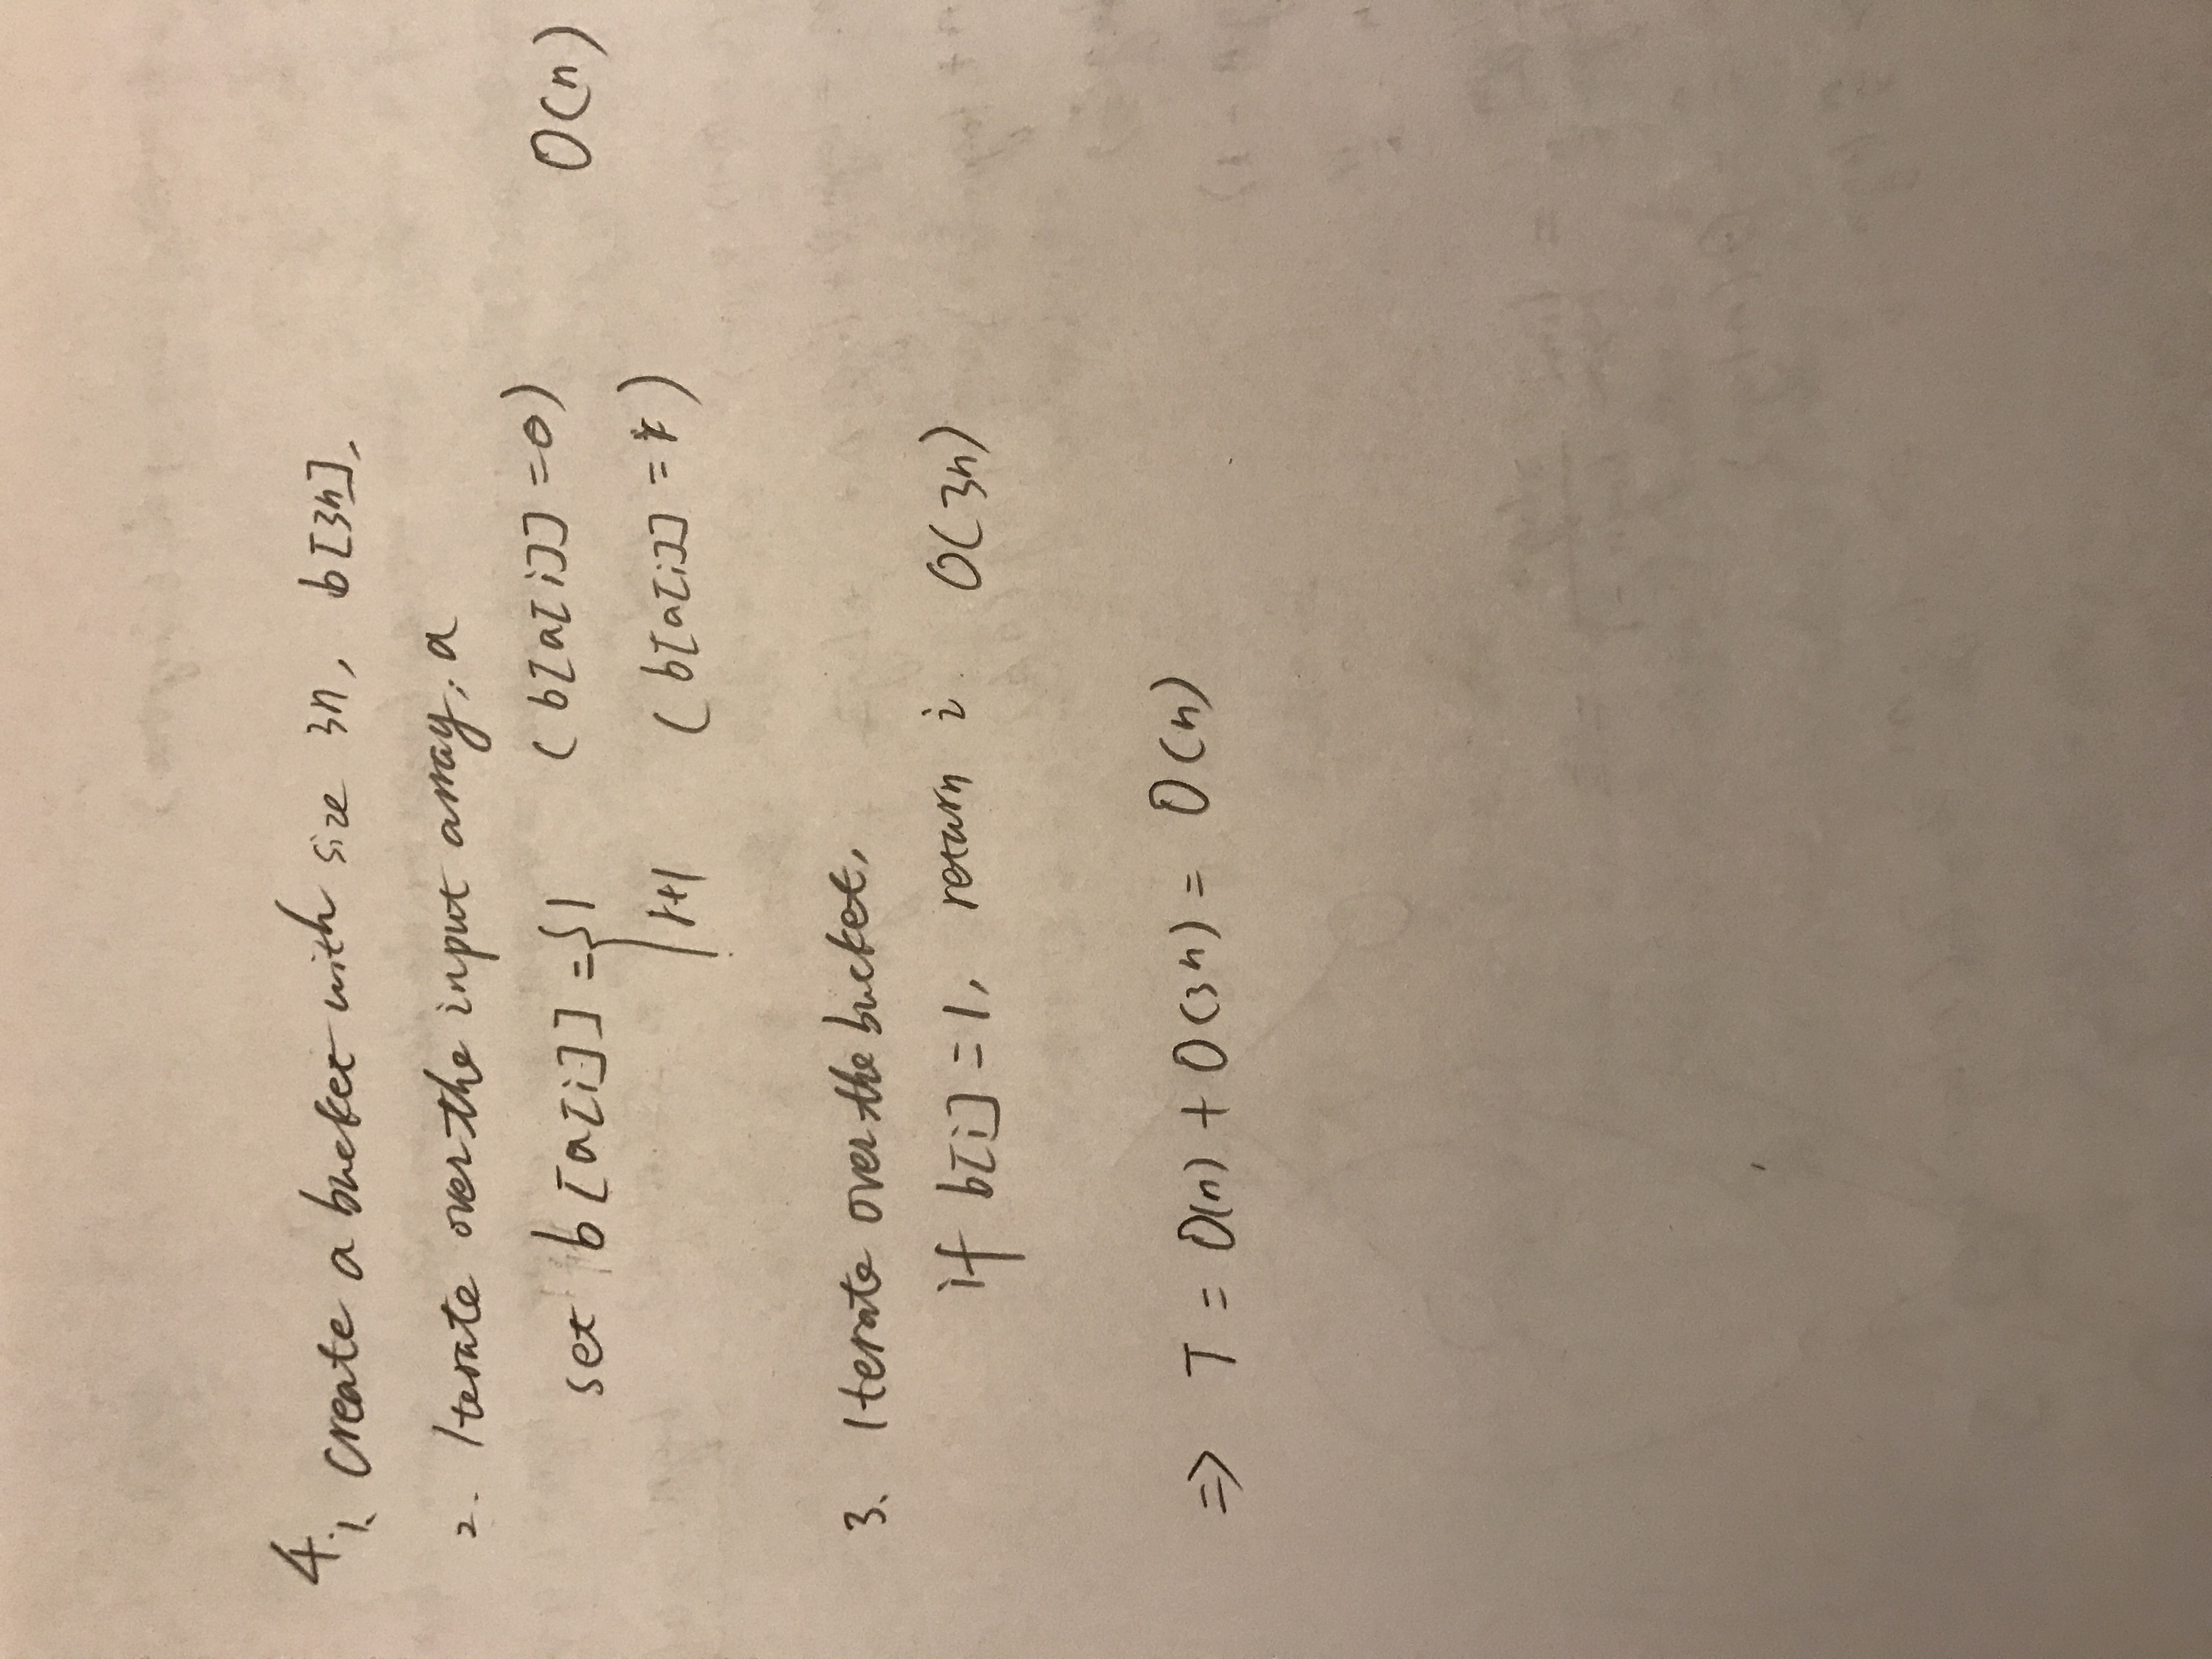 4.
1. Create a bucket with size 3n, b[3n],
2. Iterate over the input array, a
set b[a[i]] = { 1 (b[a[i]] = 0) O(n)
1+1 (b[a[i]] = )
3. Iterate over the bucket,
if b[i] = 1, return i. O(3n)
⇒ T = O(n) + O(3n) = O(n)